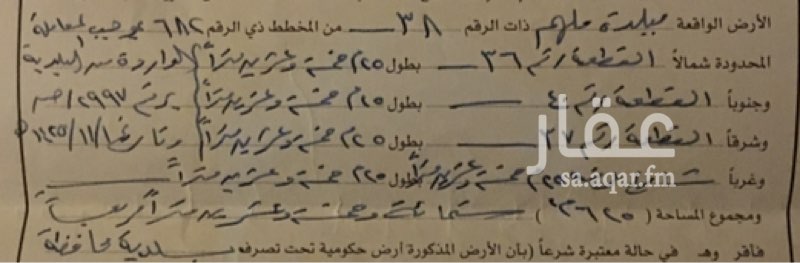 الأرض الواقعة ببلدة ملهم ذات الرقم ٣٨ من المخطط ذي الرقم ٦٨٢ بموجب المعاملة
المحدودة شمالاً القطعة رقم ٣٦ بطول ٢٥م خمسة وعشرين متراً الواردة من البلدية
وجنوباً القطعة رقم ٤٠ بطول ٢٥م خمسة وعشرين متراً برقم ٢٩٩٧/ص
وشرقاً القطعة رقم ٣٧ بطول ٢٥م خمسة وعشرين متراً وتاريخ
وغرباً شارع خمسة وعشرين متراً بطول ٢٥م خمسة وعشرين متراً
ومجموع المساحة (٦٢٥م٢) ستمائة وخمسة وعشرين متراً مربعاً
فأقر وهـ في حالة معتبرة شرعاً (بأن الأرض المذكورة أرض حكومية تحت تصرفه بلدية محافظة
عقار
sa.aqar.fm